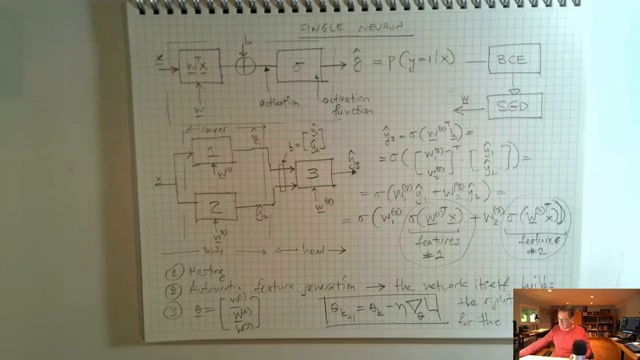 SINGLE NEURON
x w^T x b σ ŷ = p(y=1|x) BCE
w activation activation function w SGD
layer ŷ1 h = [ŷ1 ŷ2]
x 1 w^(1) 3 ŷ3
2 w^(2) ŷ2 w^(3)
body head
ŷ3 = σ(w^(3)T h) =
= σ([w1^(3) w2^(3)]^T [ŷ1 ŷ2]) =
= σ(w1^(3) ŷ1 + w2^(3) ŷ2) =
= σ(w1^(3) σ(w^(1)T x) + w2^(3) σ(w^(2)T x))
features features
#2 #2
① Nesting
② Automatic feature generation → the network itself builds
③ θ = [w^(1) w^(2) w^(3)] θ_{k+1} = θ_k - η ∇_θ L the right
for the